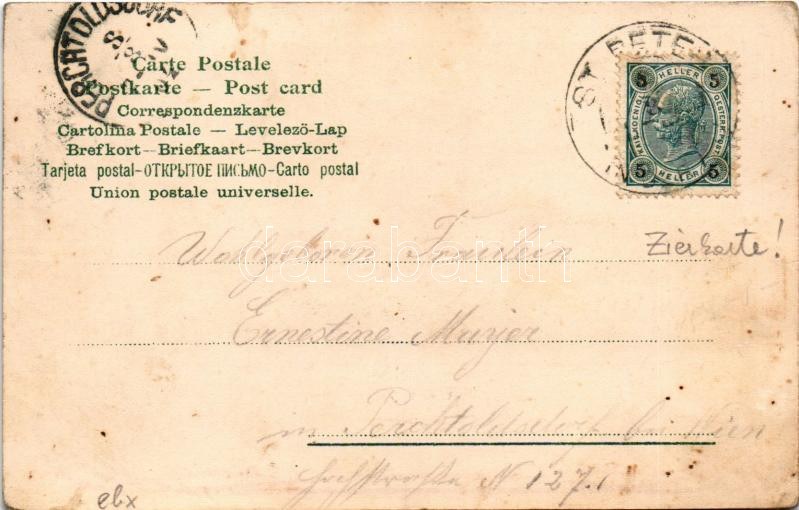 PERCHTOLDSDORF
Carte Postale
Postkarte — Post card
Correspondenzkarte
Cartolina Postale — Levelező-Lap
Brefkort—Briefkaart—Brevkort
Tarjeta postal-ОТКРЫТОЕ ПИСЬМО-Carto postal
Union postale universelle.
ST. PETE
5 HELLER 5
KAIS. KOENIGL. OESTERR. POST
5 HELLER 5
Zierkarte!
Wohlgeboren Fräulein
darabanth
Ernestine Mayer
in Perchtoldsdorf bei Wien
Hochstrasse N 127.
ebx